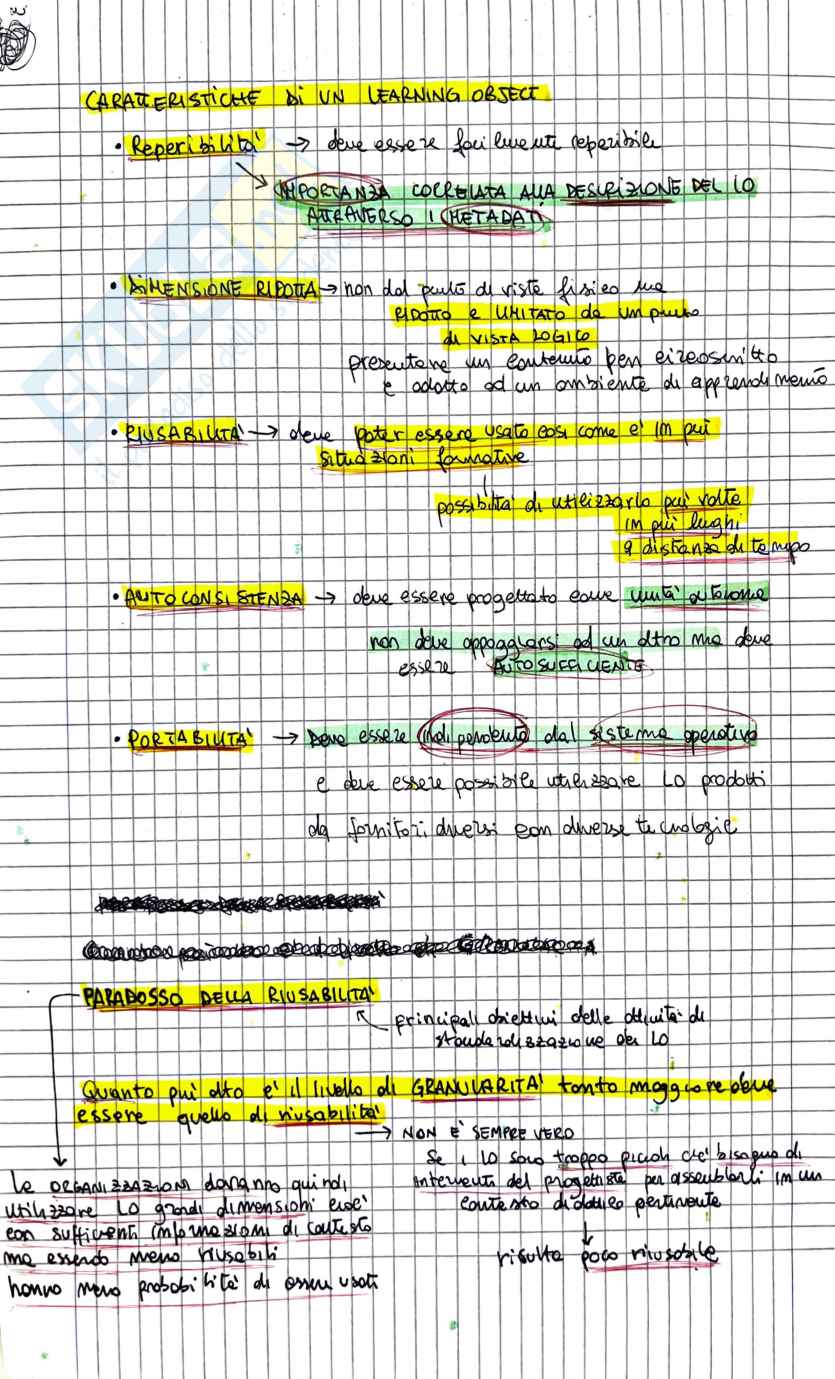 CARATTERISTICHE Di UN LEARNING OBJECT
• Reperibilità → deve essere facilmente reperibile
IMPORTANZA CORRELATA ALLA DESCRIZIONE DEL LO
ATTRAVERSO I METADATI
• DIMENSIONE RIDOTTA → non dal punto di vista fisico ma
RIDOTTO e LIMITATO da un punto
di VISTA LOGICO
presentare un contenuto ben circoscritto
e adatto ad un ambiente di apprendimento
• RIUSABILITA' → deve poter essere usato così come e' in piú
situazioni formative
possibilità di utilizzarlo piú volte
in piú luoghi
a distanza di tempo
• AUTOCONSISTENZA → deve essere progettato come unità autonoma
non deve appoggiarsi ad un altro ma deve
essere AUTOSUFFICIENTE
• PORTABILITA' → Deve essere indipendente dal sistema operativo
e deve essere possibile utilizzare LO prodotti
da fornitori diversi con diverse tecnologie
PARADOSSO DELLA RIUSABILITA'
principali obiettivi delle attività di
standardizzazione dei LO
Quanto piú alto e' il livello di GRANULARITA' tanto maggiore deve
essere quello di riusabilità
→ NON E' SEMPRE VERO
Se i LO sono troppo piccoli c'è bisogno di
interventi del progettista per assemblarli in un
contesto didattico pertinente
risulta poco riusabile
Le ORGANIZZAZIONI dovranno quindi
utilizzare LO grandi dimensioni cioè
con sufficienti informazioni di contesto
ma essendo meno riusabili
hanno meno probabilità di essere usati